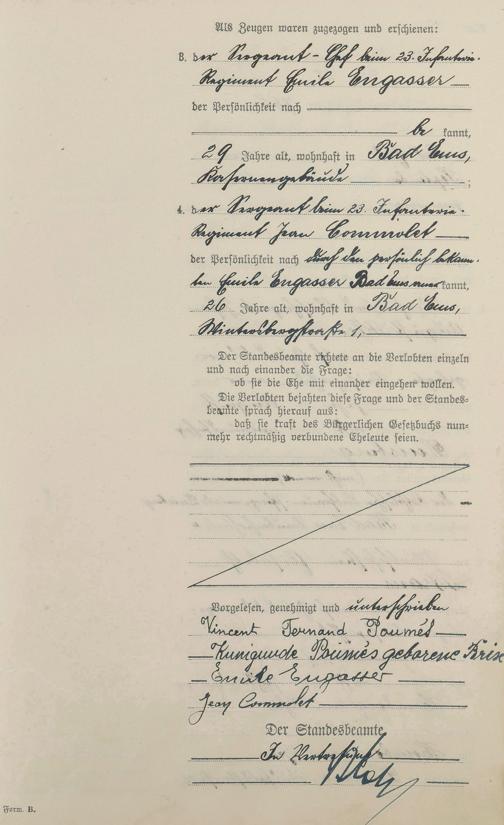 Als Zeugen waren zugezogen und erschienen:
3. der Sergeant-Chef beim 23. Infanterie-
Regiment Emile Engasser
der Persönlichkeit nach
be kannt,
29 Jahre alt, wohnhaft in Bad Ems,
Kasernengebäude
4. der Sergeant beim 23. Infanterie-
Regiment Jean Commolet
der Persönlichkeit nach durch den persönlich bekann-
ten Emile Engasser Bad Ems aner kannt,
26 Jahre alt, wohnhaft in Bad Ems,
Wintersbergstraße 1,
Der Standesbeamte richtete an die Verlobten einzeln
und nach einander die Frage:
ob sie die Ehe mit einander eingehen wollen.
Die Verlobten bejahten diese Frage und der Standes-
beamte sprach hierauf aus:
daß sie kraft des Bürgerlichen Gesetzbuchs nun-
mehr rechtmäßig verbundene Eheleute seien.
Vorgelesen, genehmigt und unterschrieben
Vincent Fernand Poumès
Kunigunde Poumès geborene
Emile Engasser
Jean Commolet
Der Standesbeamte
In Vertretung
Form. B.